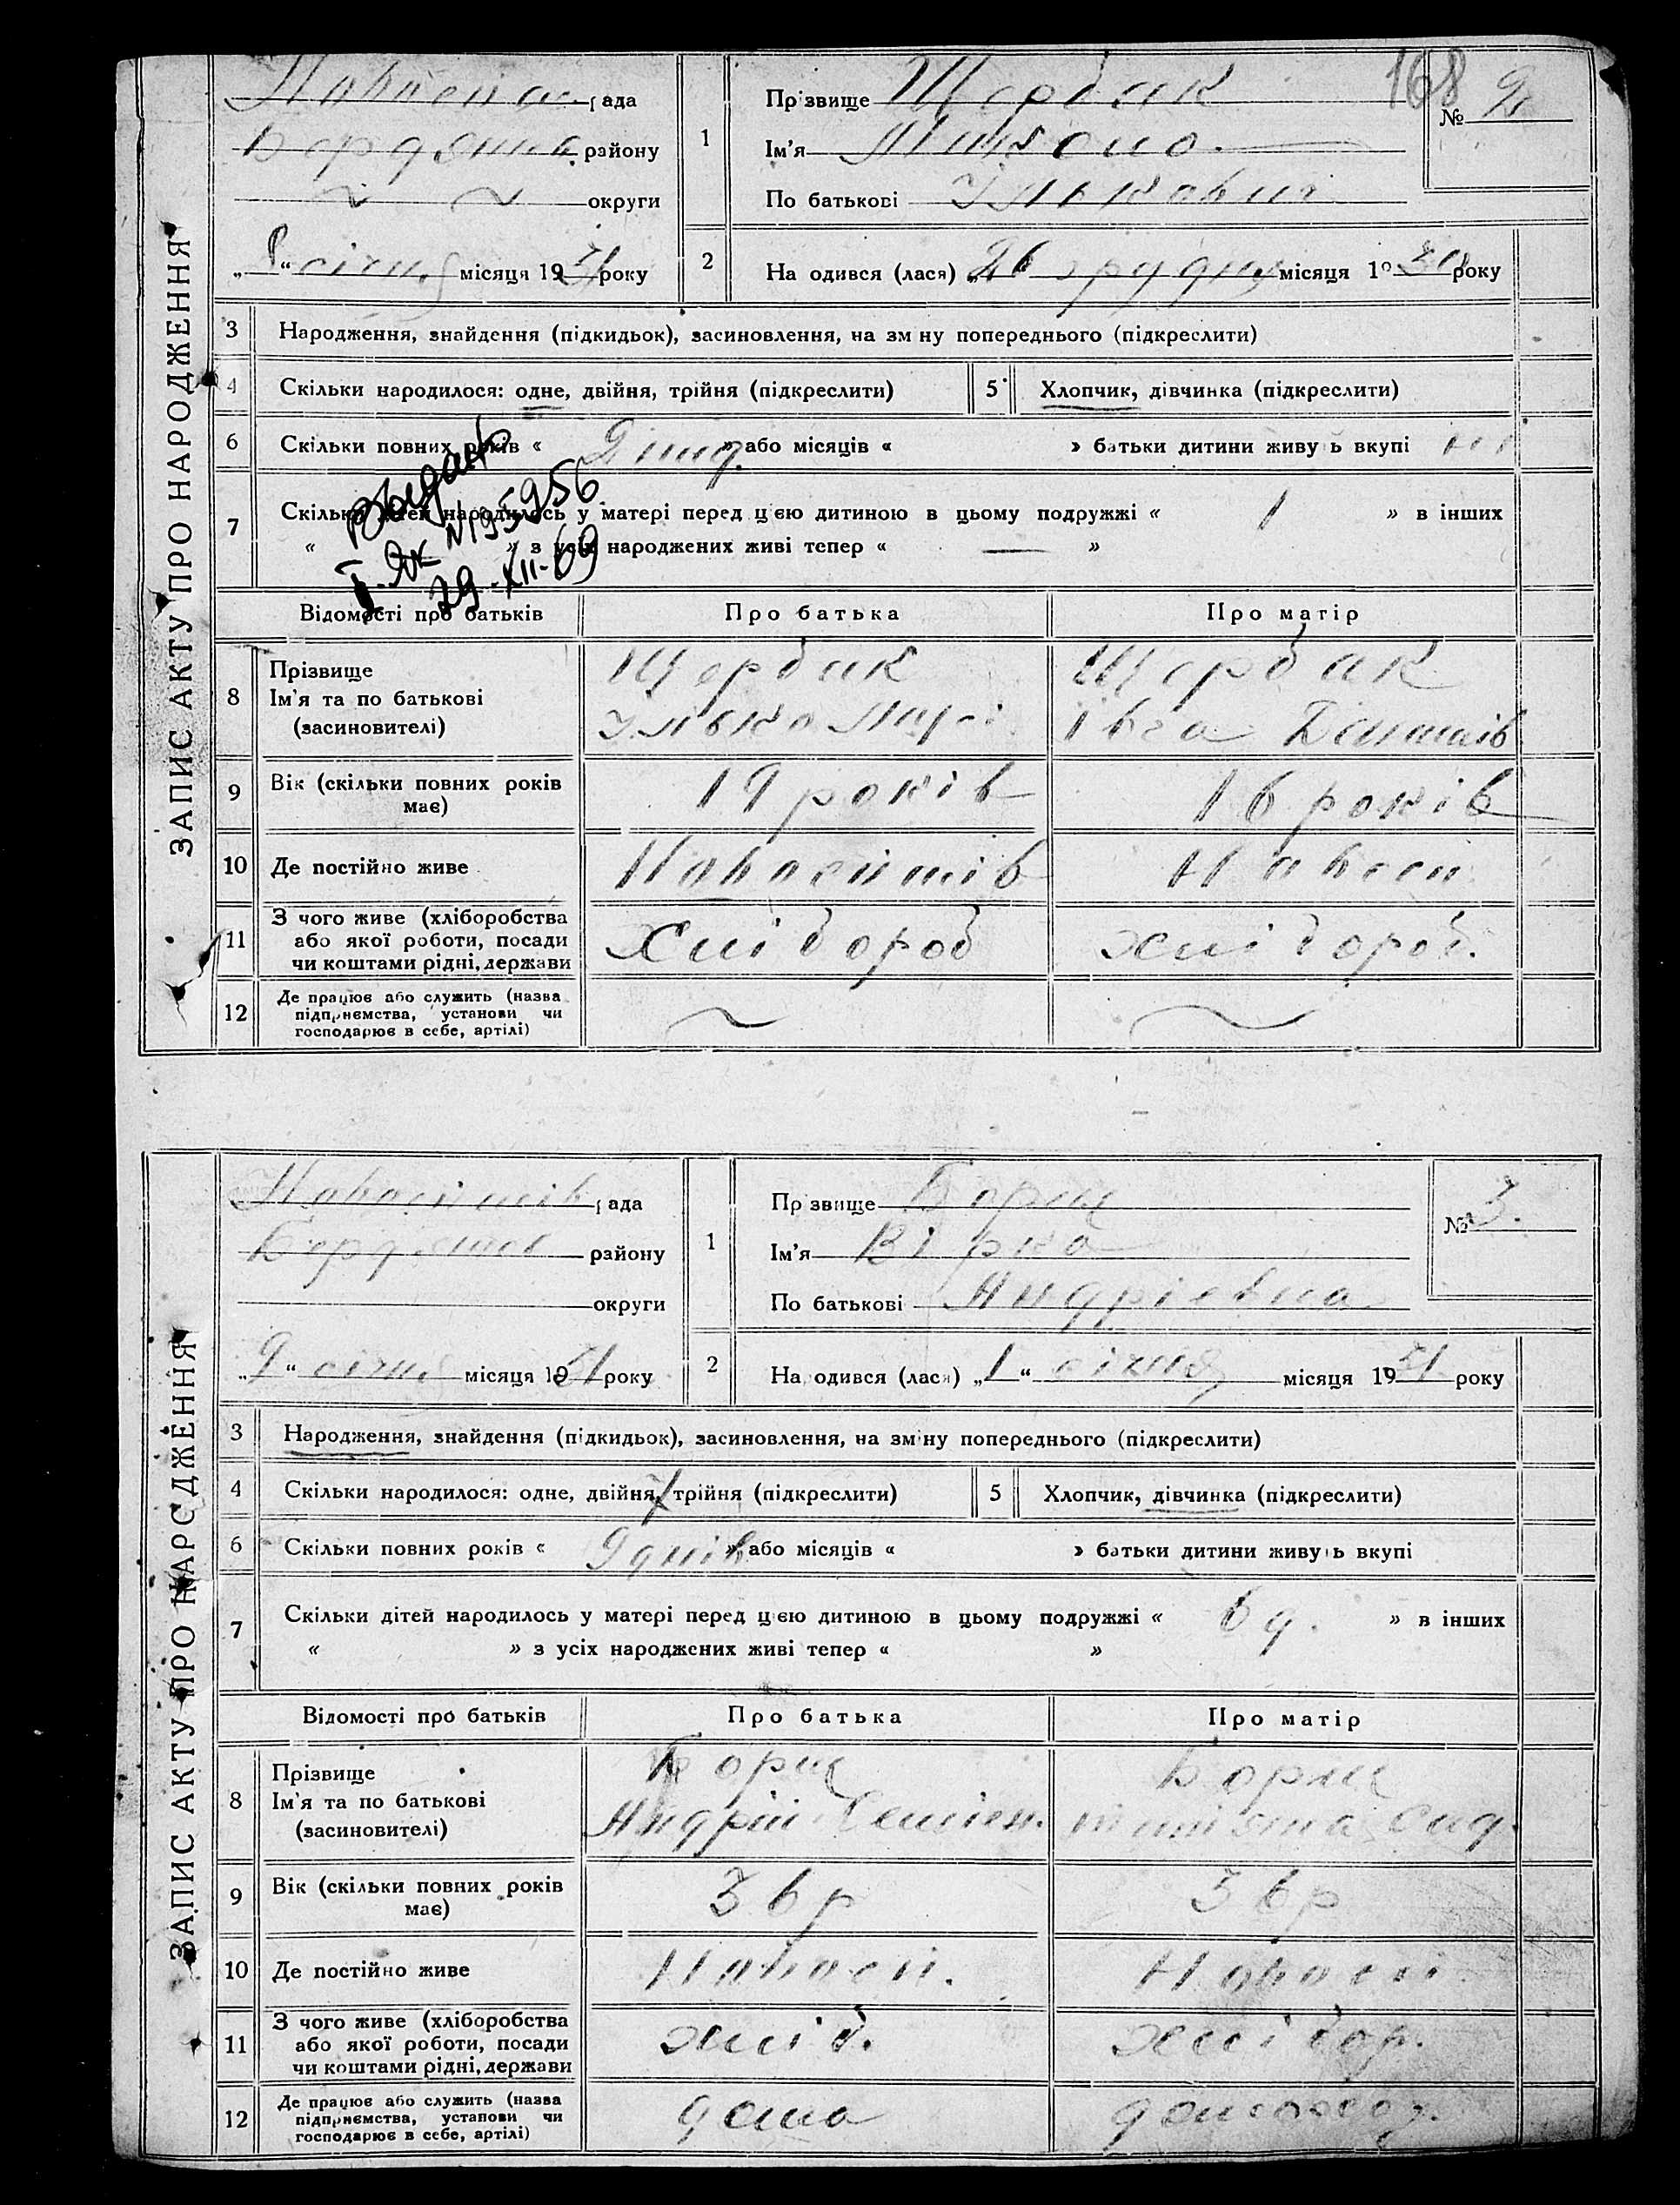 168
ЗАПИС АКТУ ПРО НАРОДЖЕННЯ
рада
району
округи
„ “ січня місяця 1931 року
1
Прізвище Щербак
Ім'я
По батьковіІлькович
№ 2
2
На одився (лася) „26 грудня місяця 1930 року
3
Народження, знайдення (підкидьок), засиновлення, на зм ну попереднього (підкреслити)
4
Скільки народилося: одне, двійня, трійня (підкреслити)
5
Хлопчик, дівчинка (підкреслити)
6
Скільки повних років « » або місяців « » батьки дитини живу ь вкупі
7
Скільки дітей народилось у матері перед цією дитиною в цьому подружжі « 1 » в інших
« » з усіх народжених живі тепер « — »
Выдано
I-ЯК N195956
29-XII-69
Відомості про батьків
Про батька
Про матір
8
Прізвище
Ім'я та по батькові
(засиновителі)
Щербак
Ілько
Щербак
Івга
9
Вік (скільки повних років має)
19 років
16 років
10
Де постійно живе
11
З чого живе (хліборобства
або якої роботи, посади
чи коштами рідні, держави
Хлібороб
хлібороб.
12
Де працює або служить (назва
підприємства, установи чи
господарює в себе, артілі)
ЗАПИС АКТУ ПРО НАРОДЖЕННЯ
рада
району
округи
„9“ січня місяця 1931 року
1
Пр звище Борщ
Ім'я Вірка
По батькові Андрієвна
№ 3.
2
На одився (лася) „1“ січня місяця 1931 року
3
Народження, знайдення (підкидьок), засиновлення, на зміну попереднього (підкреслити)
4
Скільки народилося: одне, двійня, трійня (підкреслити)
5
Хлопчик, дівчинка (підкреслити)
6
Скільки повних років « 9 днів » або місяців « » батьки дитини живуть вкупі
7
Скільки дітей народилось у матері перед цією дитиною в цьому подружжі « 6 д. » в інших
« » з усіх народжених живі тепер « »
Відомості про батьків
Про батька
Про матір
8
Прізвище
Ім'я та по батькові
(засиновителі)
Борщ
Андрій Семієн.
Борщ
9
Вік (скільки повних років має)
36 р
36 р
10
Де постійно живе
11
З чого живе (хліборобства
або якої роботи, посади
чи коштами рідні, держави
хліб.
хлібор.
12
Де працює або служить (назва
підприємства, установи чи
господарює в себе, артілі)
дома